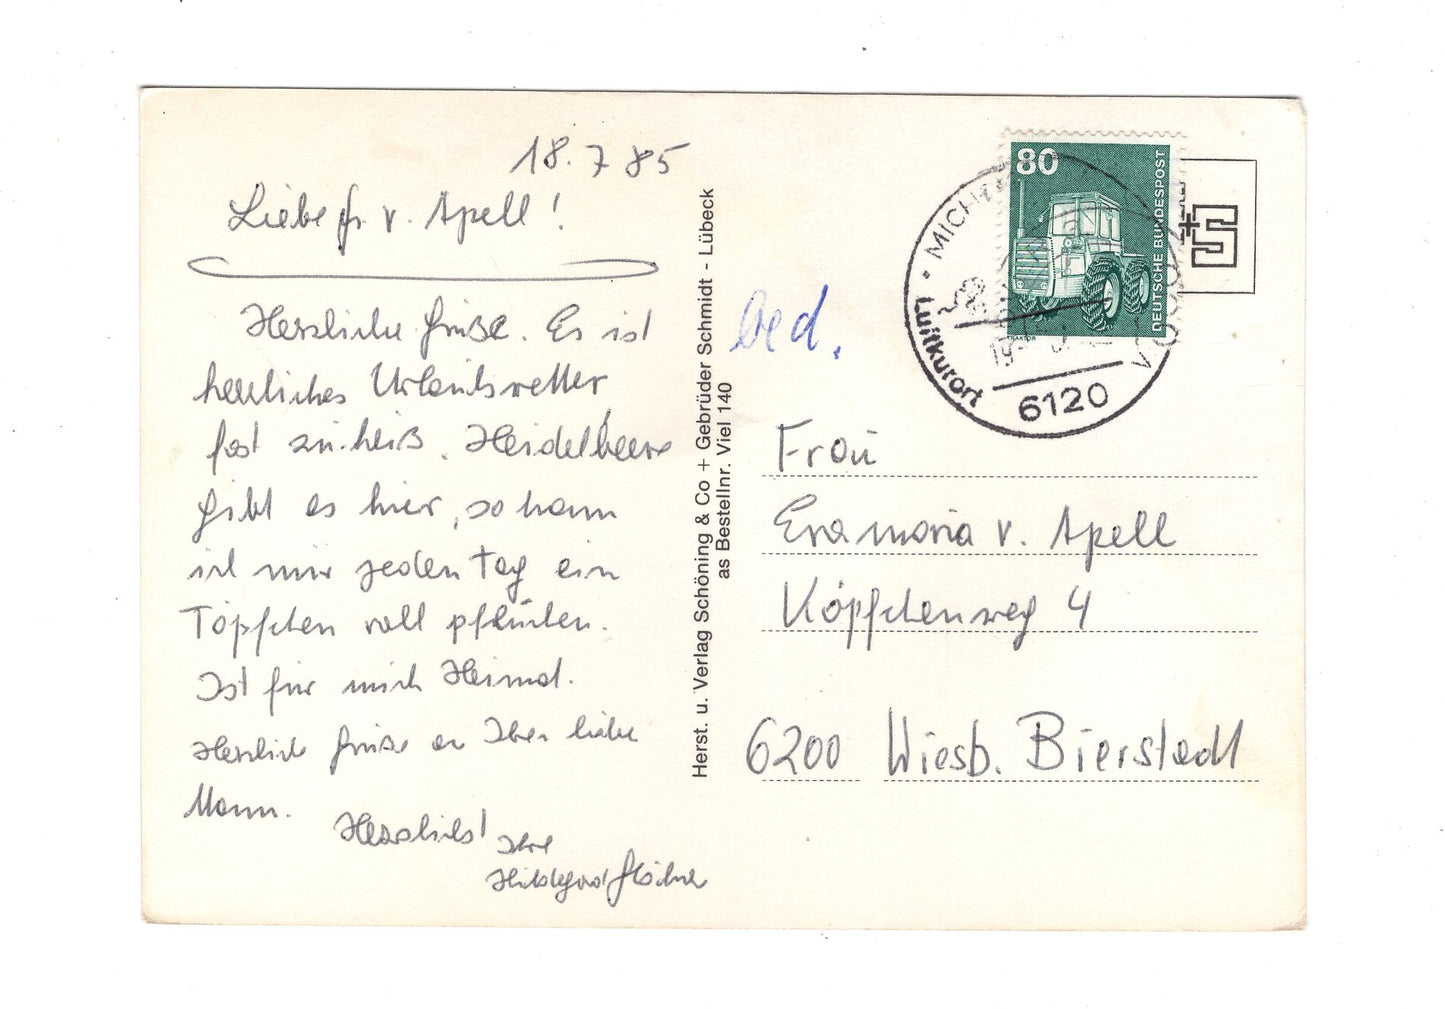 18.7 85
Liebe Fr. v. Apell!
Herzliche Grüße. Es ist
herrliches Urlaubswetter
fast zu heiß. Heidelbeere
gibt es hier, so kann
ich mir jeden Tag ein
Töpfchen voll pflücken.
Ist für mich Heimat.
Herzliche Grüße an Ihren lieben
Mann.
Herzlichst Ihre
Hildegard
Herst. u. Verlag Schöning & Co + Gebrüder Schmidt - Lübeck
as Bestellnr. Viel 140
80
DEUTSCHE BUNDESPOST
TRAKTOR
MICH
Luftkurort
6120
+S
Frau
Evamaria v. Apell
Köpfchenweg 4
6200 Wiesb. Bierstadt